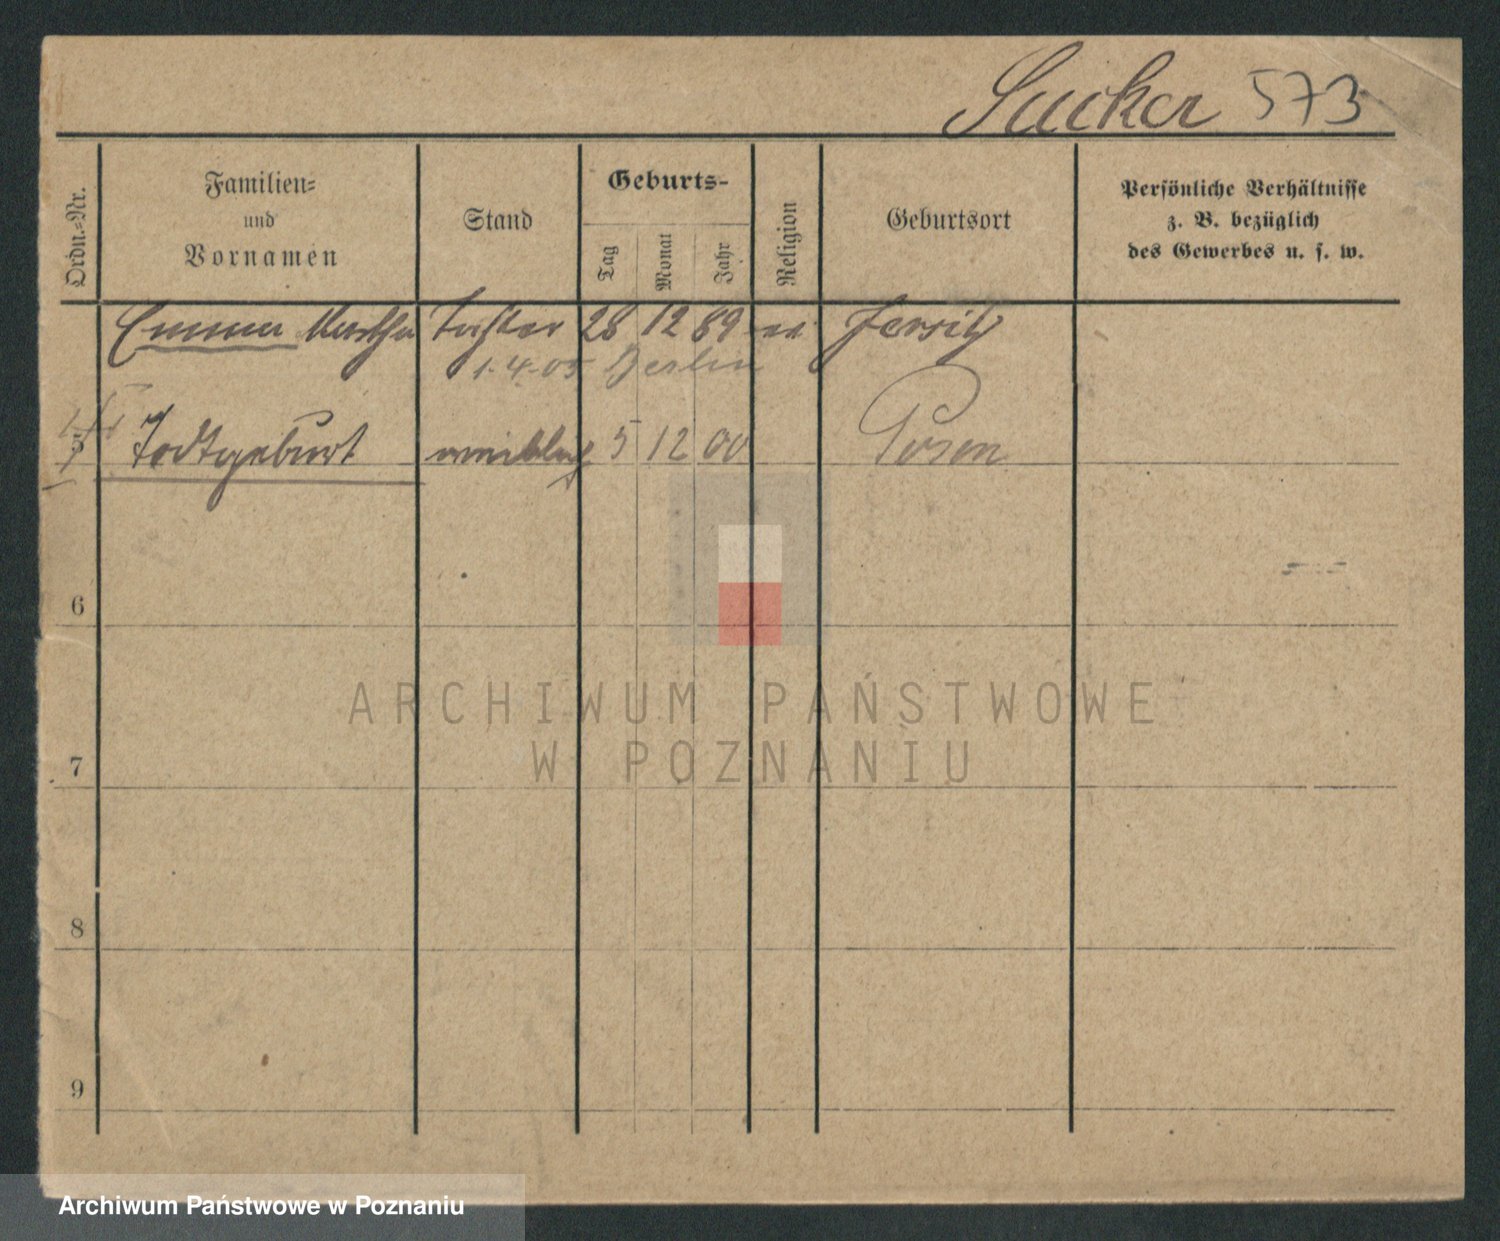 Sucker 573
Ordn.-Nr.
Familien-
und
Vornamen
Stand
Geburts-
Tag
Monat
Jahr
Religion
Geburtsort
Persönliche Verhältnisse
z. B. bezüglich
des Gewerbes u. s. w.
Emma Martha Tochter 28 12 89 Jersitz
1.4.05 Berlin
5 Todtgeburt weiblich 5 12 00 Posen
6
7
8
9
ARCHIWUM PAŃSTWOWE
W POZNANIU
Archiwum Państwowe w Poznaniu